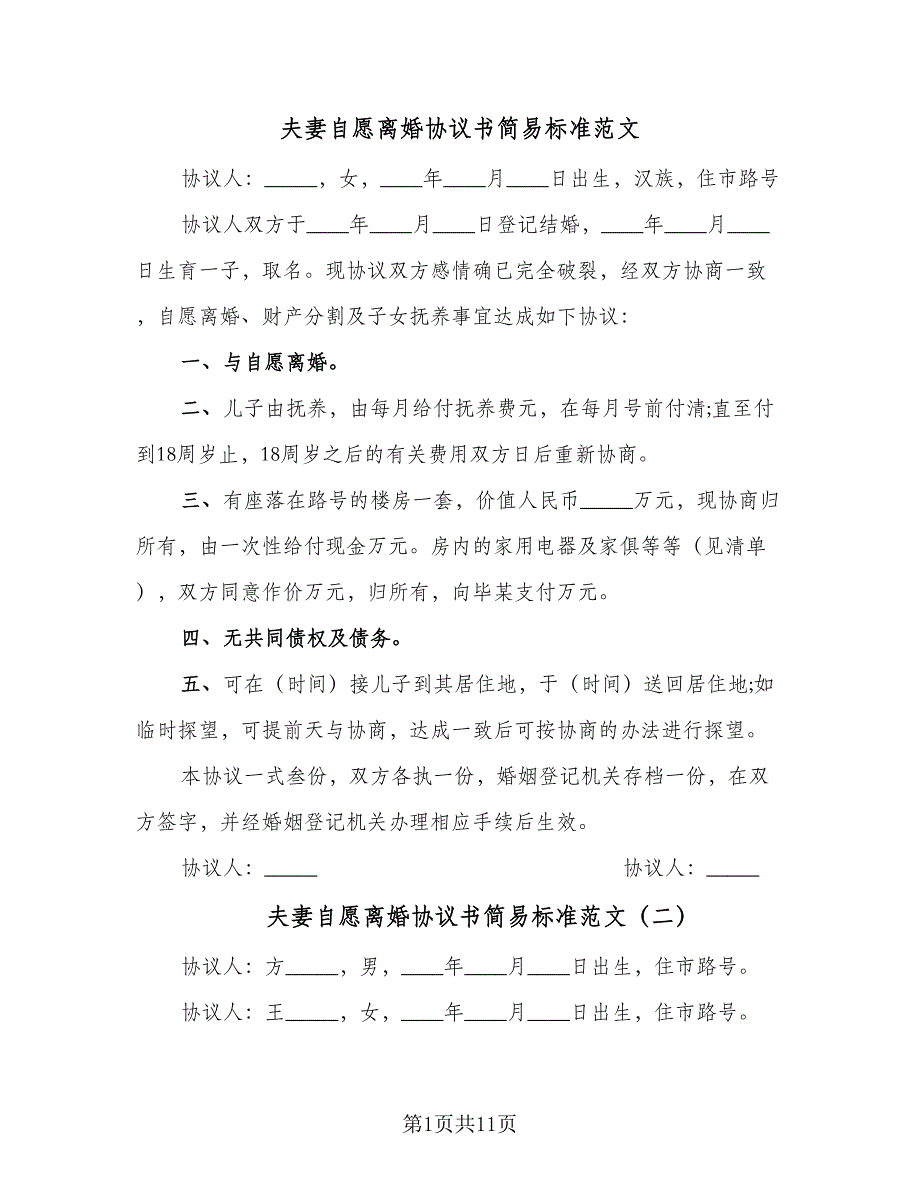 夫妻自愿离婚协议书简易标准范文
协议人：_____，女，____年____月____日出生，汉族，住市路号
协议人双方于____年____月____日登记结婚，____年____月____
日生育一子，取名。现协议双方感情确已完全破裂，经双方协商一致
，自愿离婚、财产分割及子女抚养事宜达成如下协议：
一、与自愿离婚。
二、儿子由抚养，由每月给付抚养费元，在每月号前付清;直至付
到18周岁止，18周岁之后的有关费用双方日后重新协商。
三、有座落在路号的楼房一套，价值人民币_____万元，现协商归
所有，由一次性给付现金万元。房内的家用电器及家俱等等（见清单
），双方同意作价万元，归所有，向毕某支付万元。
四、无共同债权及债务。
五、可在（时间）接儿子到其居住地，于（时间）送回居住地;如
临时探望，可提前天与协商，达成一致后可按协商的办法进行探望。
本协议一式叁份，双方各执一份，婚姻登记机关存档一份，在双
方签字，并经婚姻登记机关办理相应手续后生效。
协议人：_____ 协议人：_____
夫妻自愿离婚协议书简易标准范文（二）
协议人：方_____，男，____年____月____日出生，住市路号。
协议人：王_____，女，____年____月____日出生，住市路号。
第1页共11页